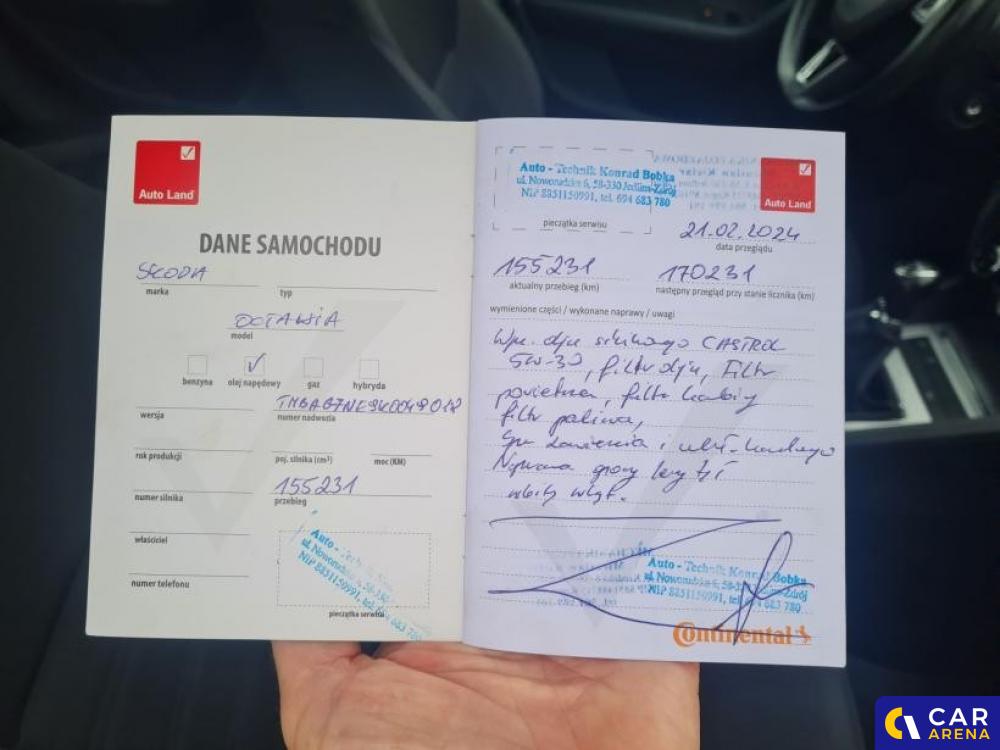 Auto Land
DANE SAMOCHODU
SKODA
marka
typ
OCTAWIA
model
benzyna
olej napędowy
gaz
hybryda
wersja
numer nadwozia
rok produkcji
poj. silnika (cm³)
moc (KM)
155231
numer silnika
przebieg
właściciel
numer telefonu
Auto -
ul. Noworudzka 6, 58-330
NIP 8851150991, tel. 694 683 780
pieczątka serwisu
Auto - Technik Konrad Bobka
ul. Noworudzka 6, 58-330 Jedlina-Zdrój
NIP 8851150991, tel. 694 683 780
pieczątka serwisu
Auto Land
21.02.2024
data przeglądu
155231
aktualny przebieg (km)
170231
następny przegląd przy stanie licznika (km)
wymienione części / wykonane naprawy / uwagi
CASTROL
5W-30, filtr oleju, Filtr
powietrza, filtr kabiny
filtr paliwa,
Auto - Technik Konrad Bobka
ul. Noworudzka 6, 58-330 Jedlina-Zdrój
NIP 8851150991, tel. 694 683 780
Continental
CAR
ARENA